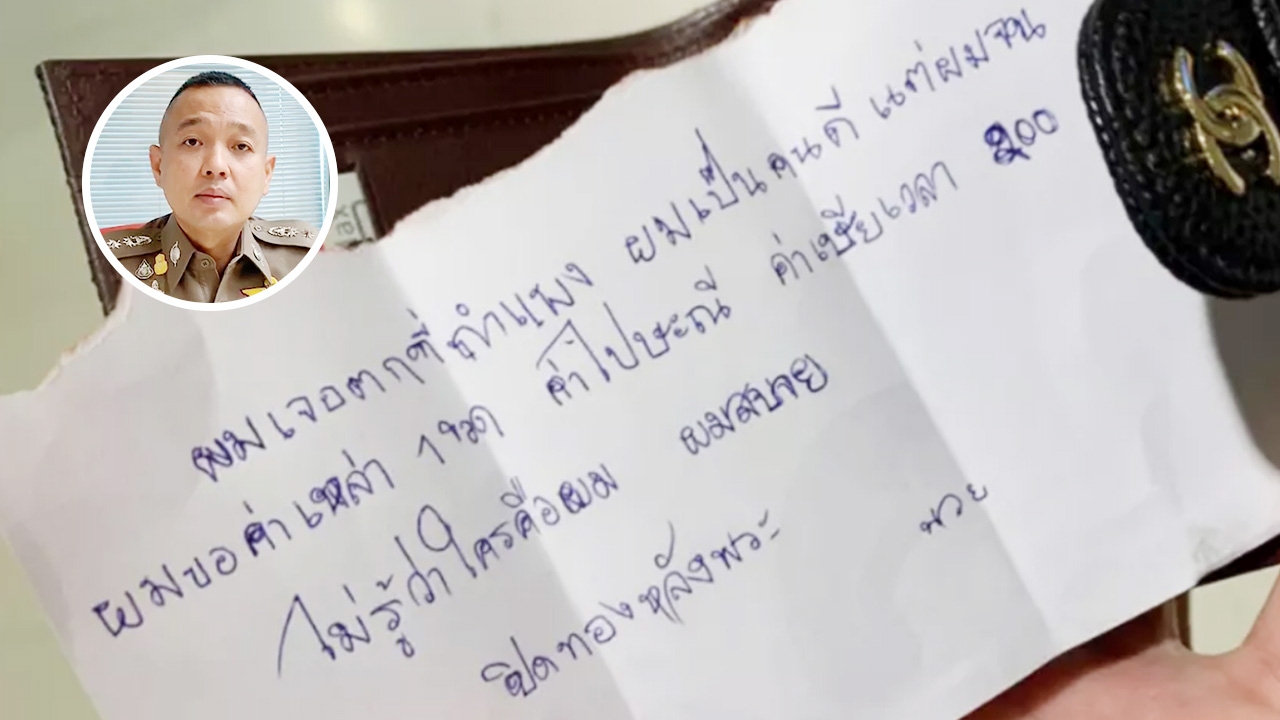 ผมเจอตกที่กำแพง ผมเป็นคนดี แต่ผมจน
ผมขอค่าเหล่า 1 ขวด ค่าไปษะณี ค่าเซียเวลา 200
ไม่รู้ว่าใครคือผม ผมสบาย
ปิดทองหลังพระ